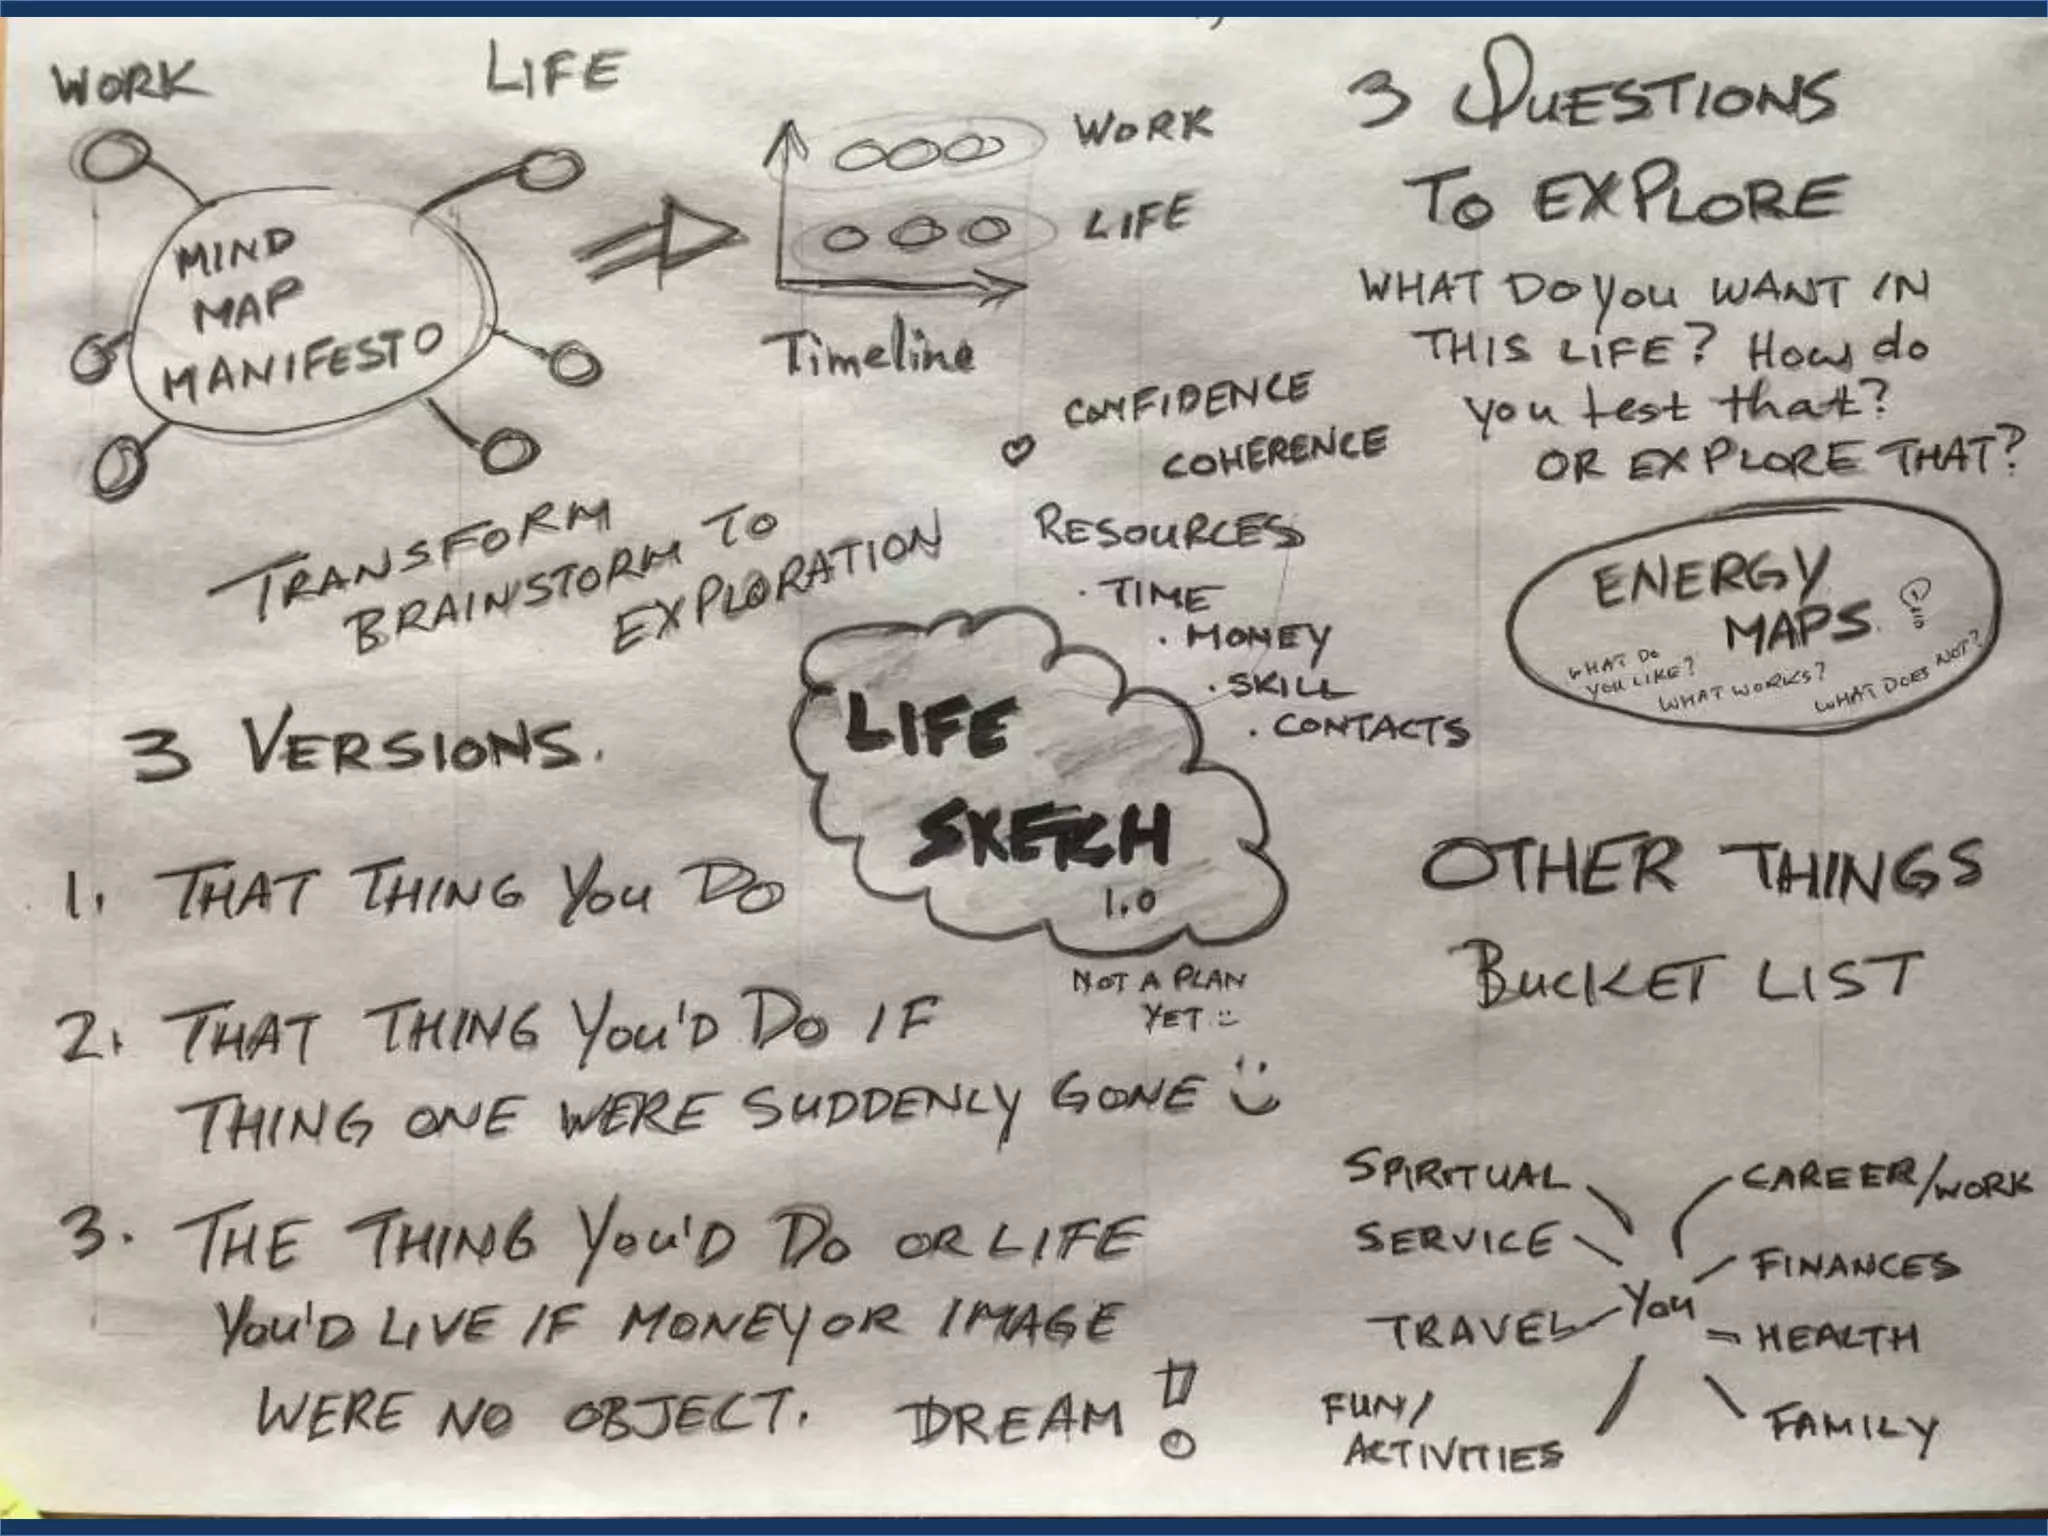 WORK
LIFE
MIND
MAP
MANIFESTO
WORK
LIFE
Timeline
TRANSFORM
BRAINSTORM TO
EXPLORATION
CONFIDENCE
COHERENCE
RESOURCES
· TIME
· MONEY
· SKILL
· CONTACTS
3 QUESTIONS
TO EXPLORE
WHAT DO YOU WANT IN
THIS LIFE? HOW do
you test that?
OR EXPLORE THAT?
ENERGY
MAPS
WHAT DO
YOU LIKE?
WHAT WORKS?
WHAT DOES NOT?
LIFE
SKETCH
1.0
NOT A PLAN
YET :)
3 VERSIONS.
1. THAT THING YOU DO
2. THAT THING YOU'D DO IF
THING ONE WERE SUDDENLY GONE
3. THE THING YOU'D DO OR LIFE
YOU'D LIVE IF MONEY OR IMAGE
WERE NO OBJECT. DREAM!
OTHER THINGS
BUCKET LIST
SPIRITUAL
SERVICE
TRAVEL
FUN/
ACTIVITIES
YOU
CAREER/WORK
FINANCES
HEALTH
FAMILY